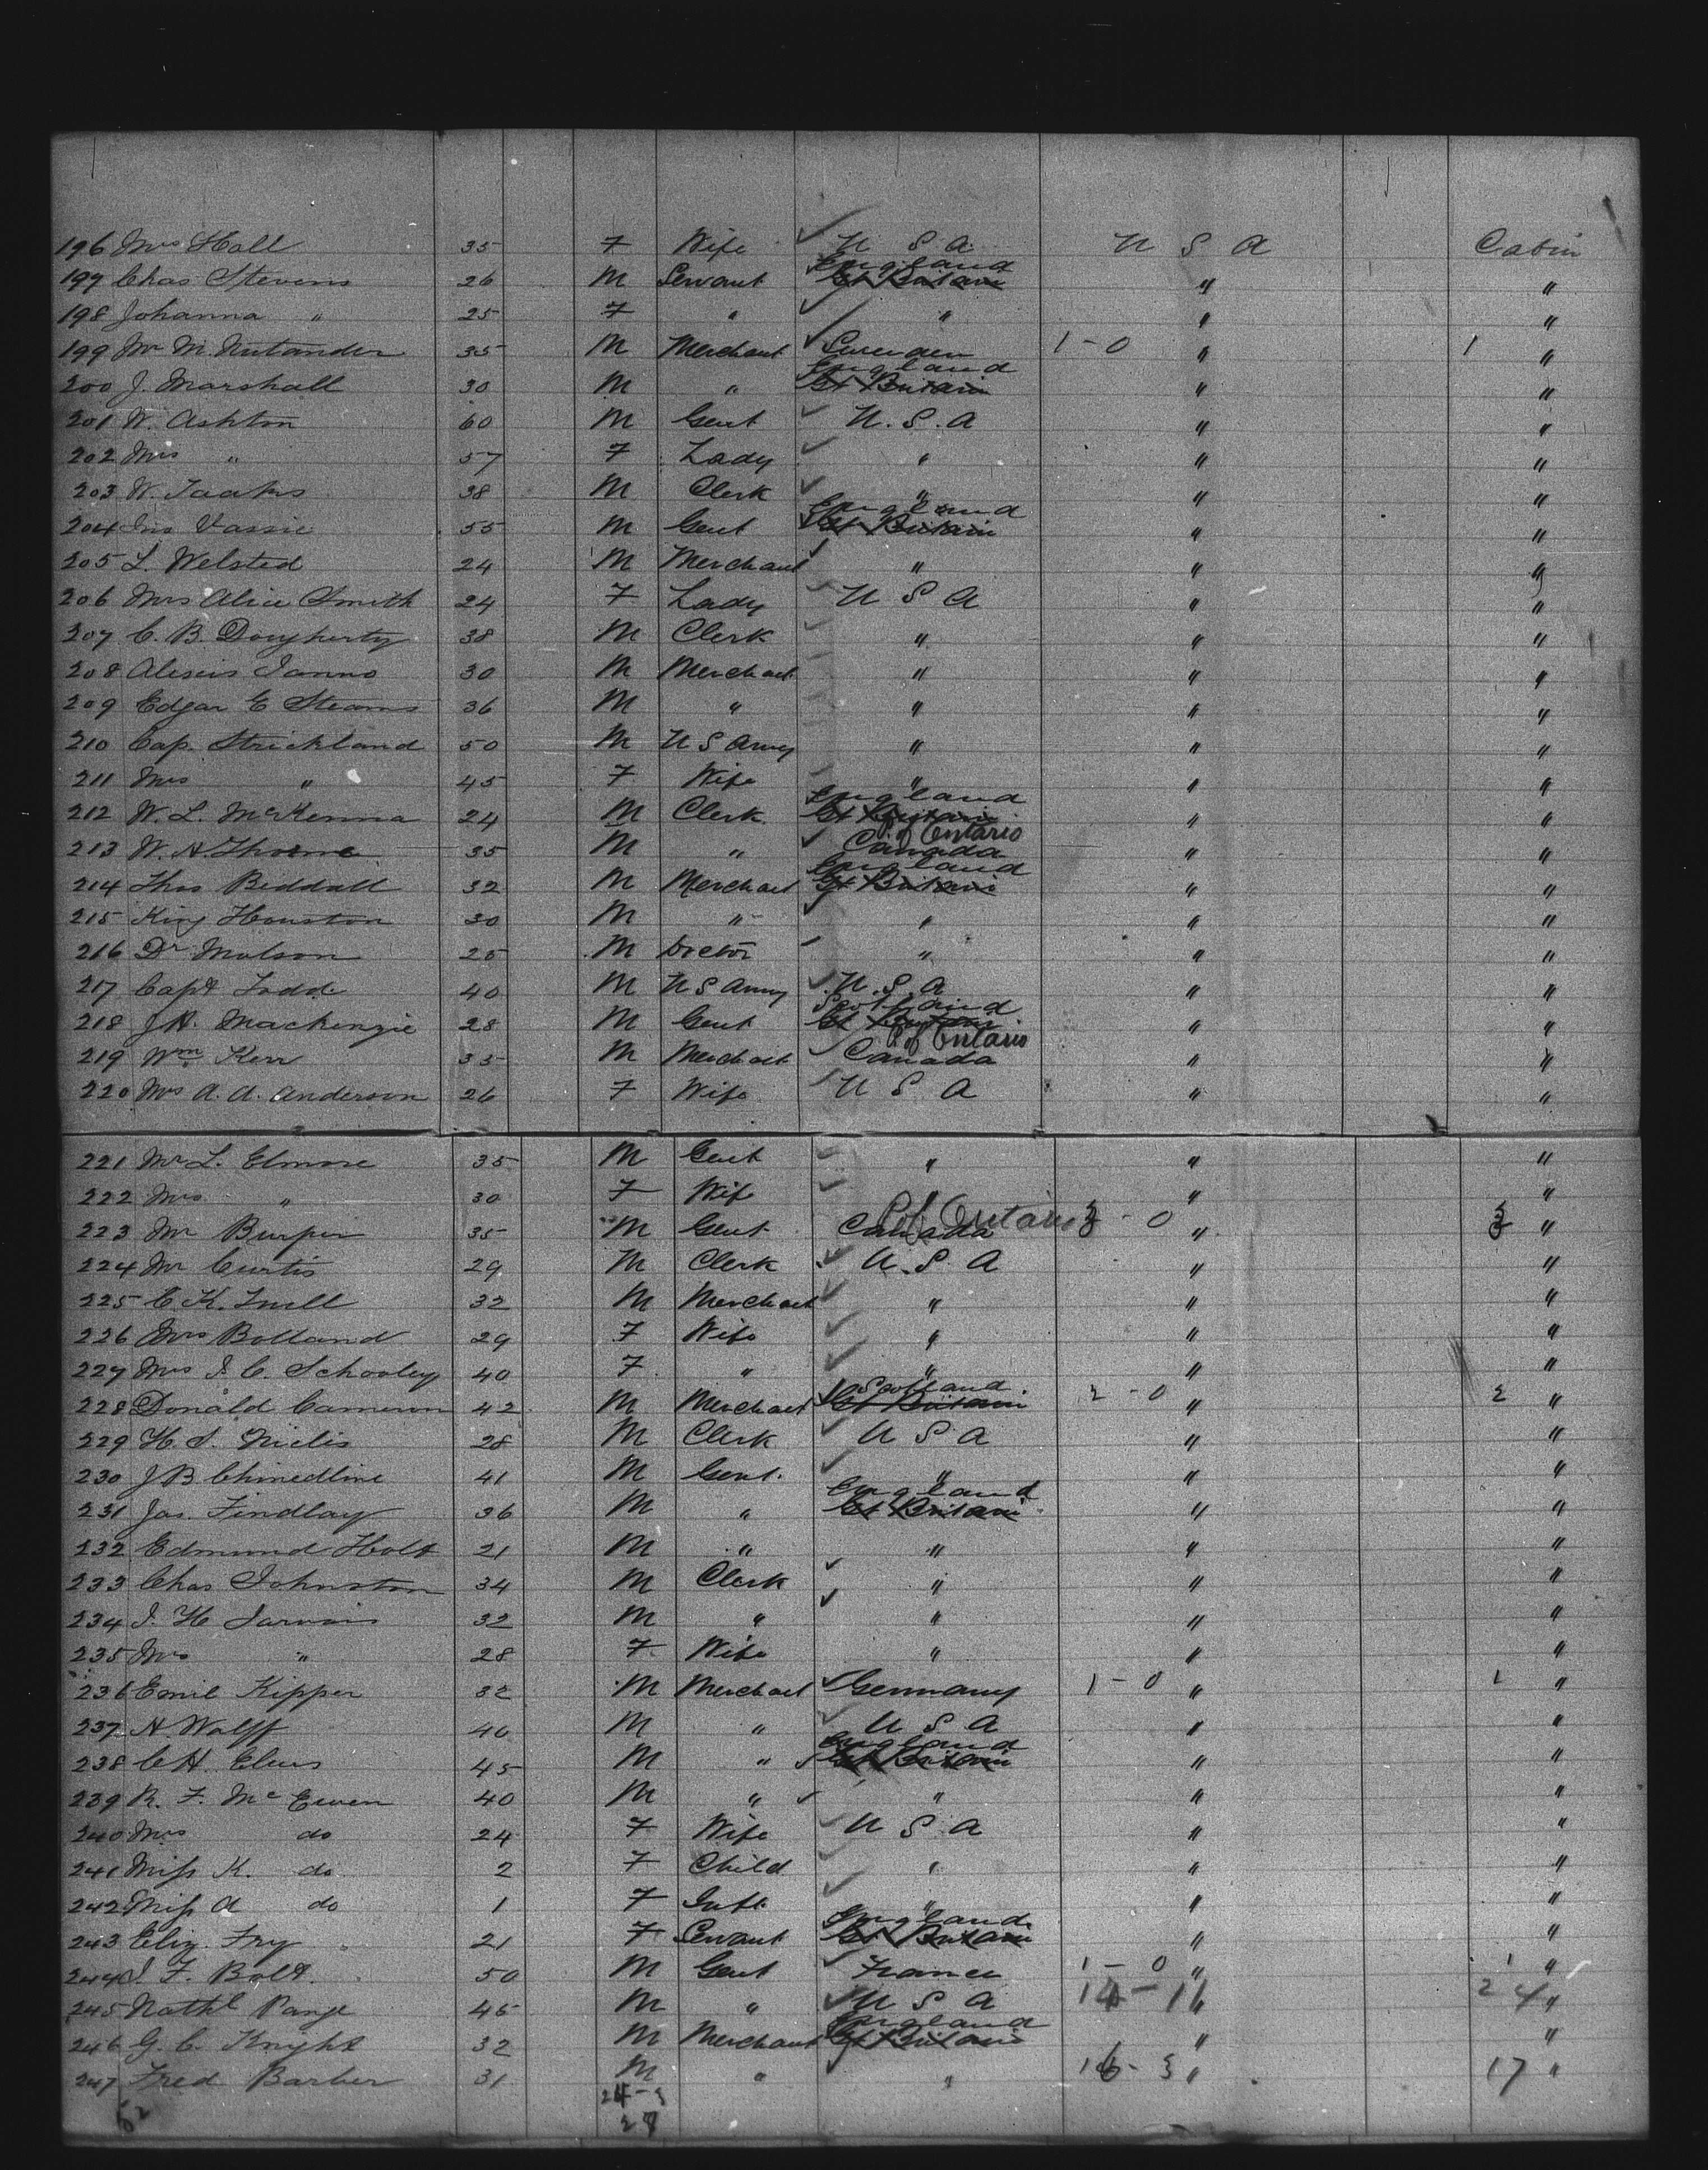 196 Mrs Hall 35 F Wife U S A U S A Cabin
197 Chas Stevens 26 M Servant England Gt Britain " "
198 Johanna " 25 F " " " "
199 Mr M. Nutander 35 M Merchant Sweeden 1-0 " 1 "
200 J. Marshall 30 M " England Gt Britain " "
201 W. Ashton 60 M Gent U. S. A " "
202 Mrs " 57 F Lady " " "
203 W. 38 M Clerk " " "
204 Jno Vassie 55 M Gent England Gt Britain " "
205 L. Welsted 24 M Merchant " " "
206 Mrs Alice Smith 24 F Lady U S A " "
207 C. B. Dougherty 38 M Clerk " " "
208 Alexis 30 M Merchant " " "
209 Edgar E Stearns 36 M " " " "
210 Cap. Strickland 50 M U S Army " " "
211 Mrs " 45 F Wife " " "
212 W. L. McKenna 24 M Clerk England Gt Britain " "
213 W. H. Thorne 35 M " P. of Ontario Canada " "
214 Thos Biddall 32 M Merchant England Gt Britain " "
215 King Houston 30 M " " " "
216 Dr Molson 25 M Doctor " " "
217 Capt Todd 40 M U S Army U. S. A " "
218 J. H. Mackenzie 28 M Gent Scotland Gt Britain " "
219 Wm Kerr 35 M Merchant P. of Ontario Canada " "
220 Mrs A. A. Anderson 26 F Wife U S A " "
221 Mr L. Elmore 35 M Gent " " "
222 Mrs " 30 F Wife " "
223 Mr Burpee 35 M Gent P. of Ontario Canada 3-0 " 3 "
224 Mr Curtis 29 M Clerk U. S. A " "
225 C. K. 32 M Merchant " " "
226 Mrs Bolland 29 F Wife " " "
227 Mrs J. C. Schooley 40 F " " " "
228 Donald Cameron 42 M Merchant Scotland Gt Britain 2-0 " 2 "
229 H. S. 28 M Clerk U S A " "
230 J B Chinedline 41 M Gent. " " "
231 Jas. Findlay 36 M " England Gt Britain " "
232 Edmund Holt 21 M " " " "
233 Chas Johnston 34 M Clerk " " "
234 J. H Jarvis 32 M " " " "
235 Mrs " 28 F Wife " " "
236 Emil Kipper 32 M Merchant Germany 1-0 " 1 "
237 A Wolff 40 M " U S A " "
238 C H. 45 M " England Gt Britain " "
239 R. F. Mc Ewen 40 M " " " "
240 Mrs do 24 F Wife U S. A " "
241 Miss K. do 2 F Child " " "
242 Miss A do 1 F Inft. " " "
243 Eliz. Fry 21 F Servant England Gt Britain " "
244 J. F. Bolt. 50 M Gent France 1-0 " 1 "
245 Nathl 45 M " U S A 14-11 " 24 "
246 G. C. Knight 32 M Merchant England Gt Britain " "
247 Fred Barber 31 M " " 16-3 " 17 "
52 24-3
27